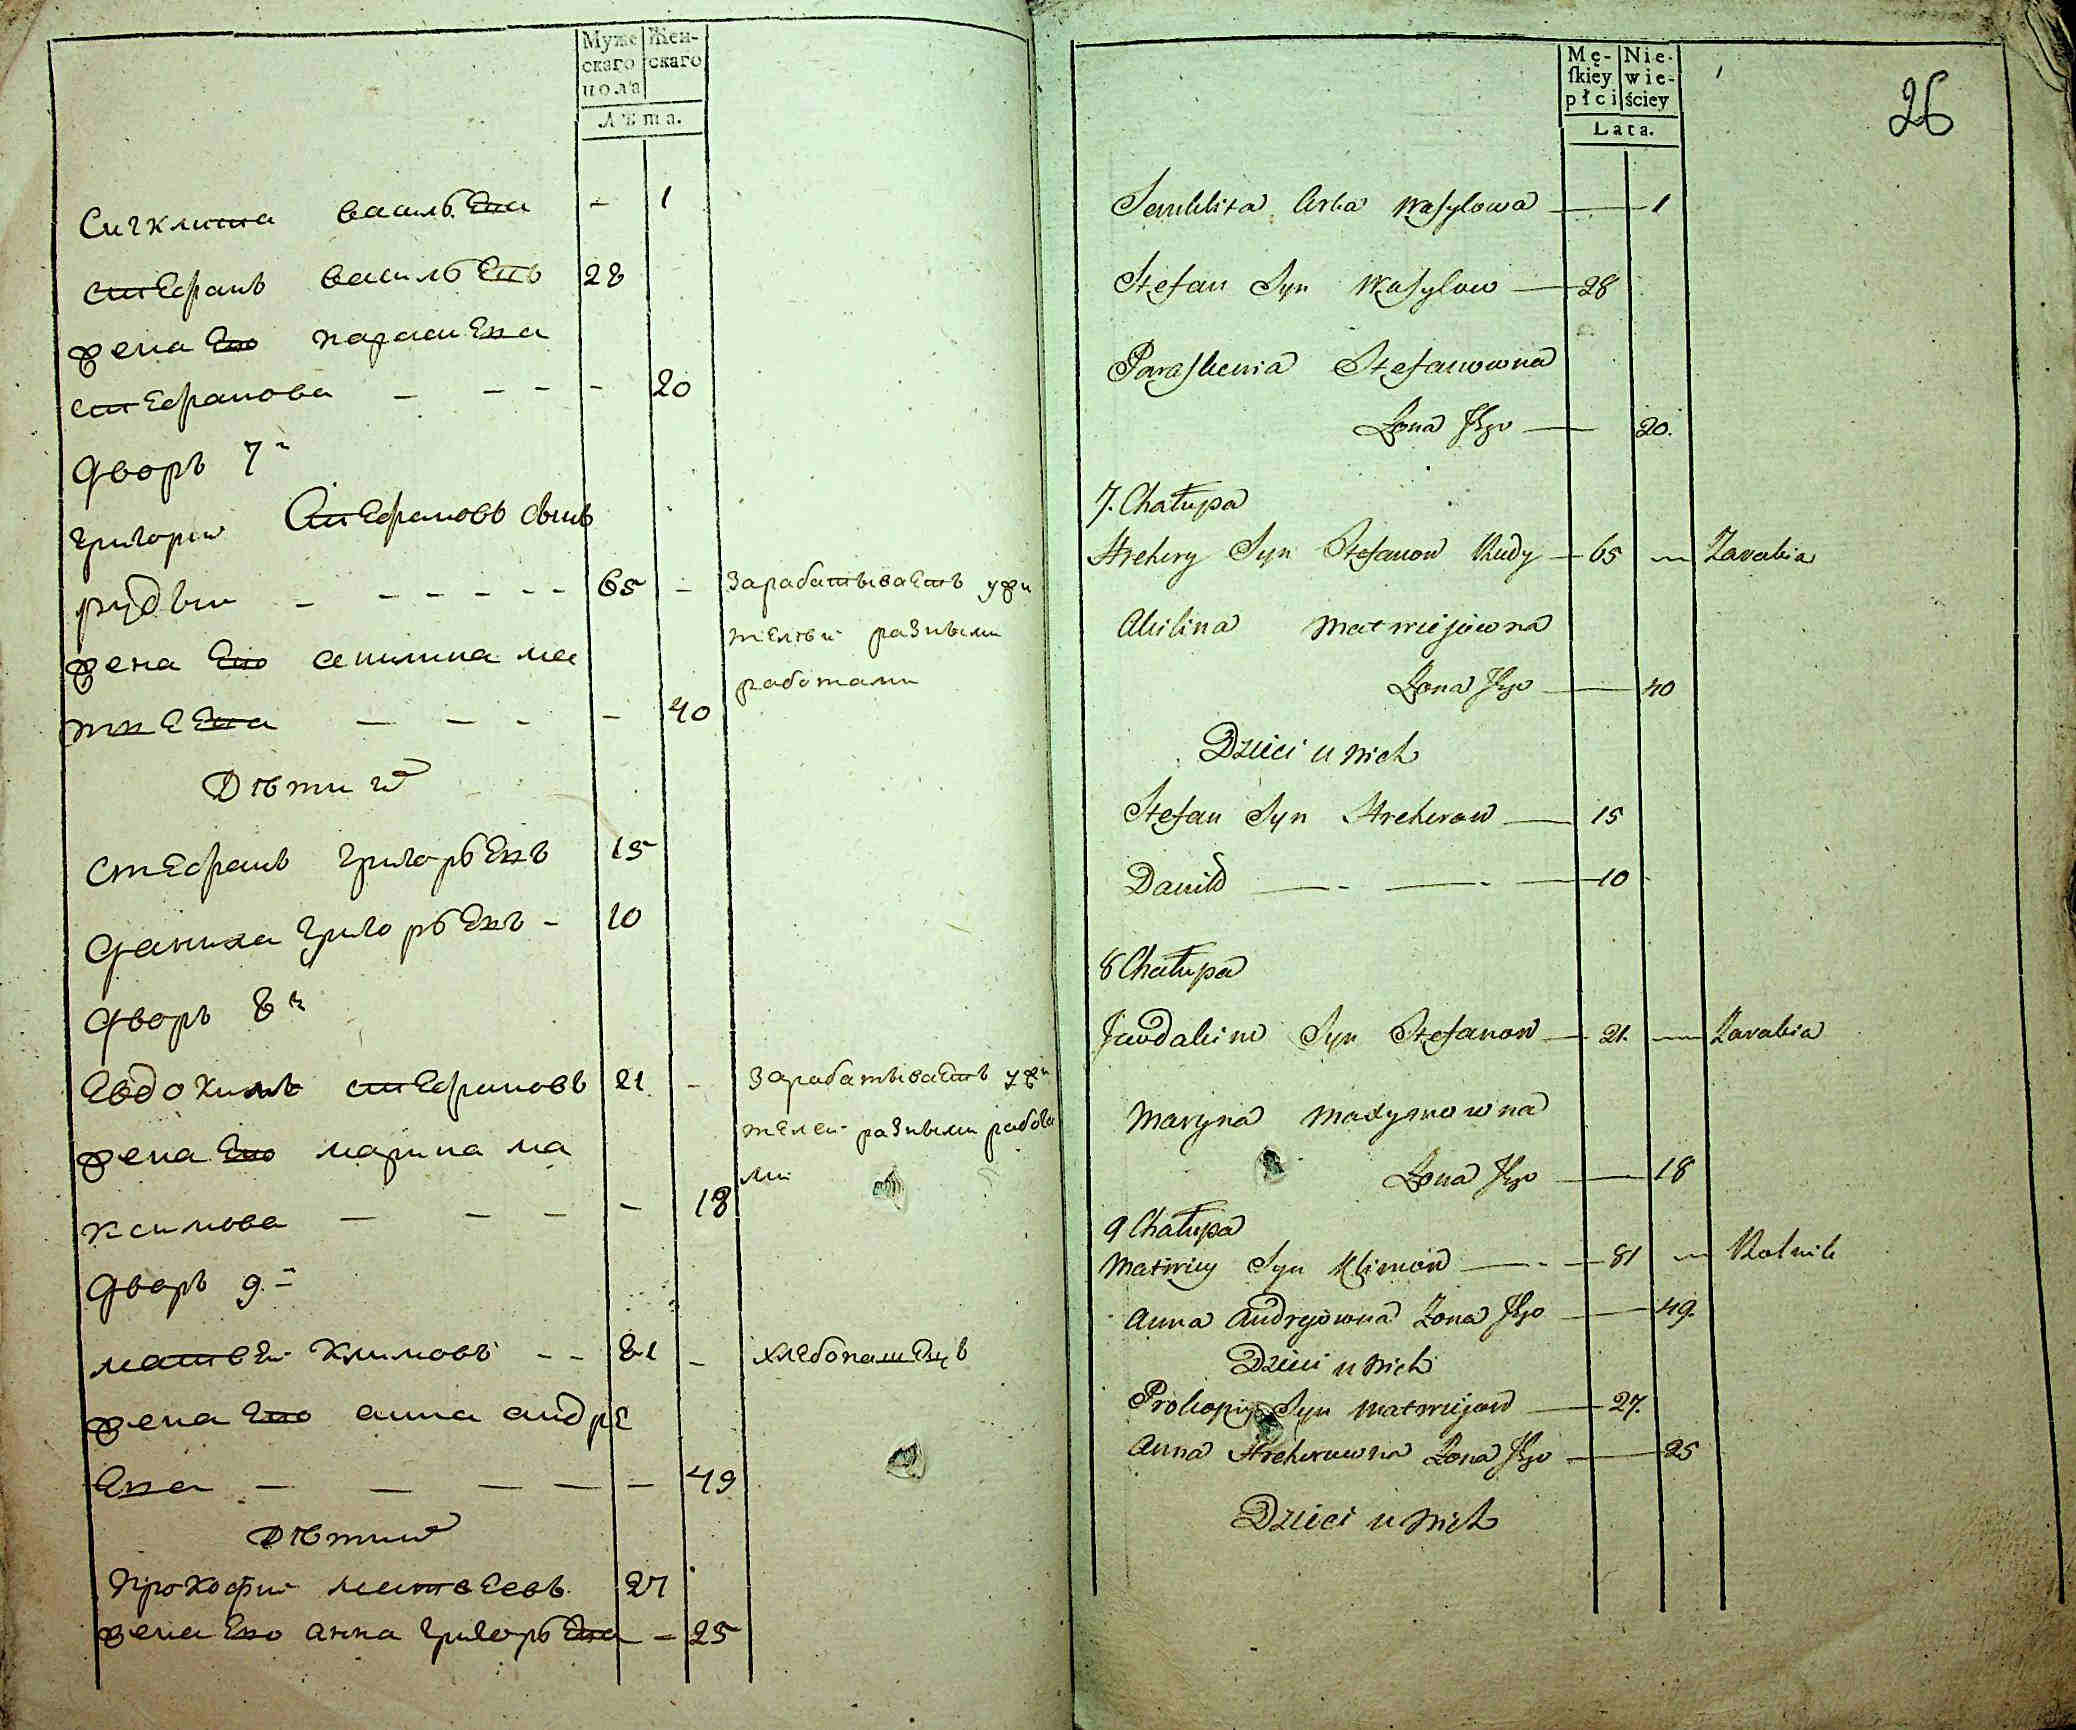 Муже
скаго
пола
Жен-
скаго
Лѣта.
васильева 1
стефанъ васильевъ 28
жена ево парасвева
стефанова 20
дворъ 7й
григореи Стефановъ сынъ
рудыи 65 зарабатываетъ у жи
телеи разными
работами
жена ево акилина ма
твеева 40
Дѣти ихъ
стефанъ григорьевъ 15
данила григорьевъ 10
дворъ 8й
Евдокимъ стефановъ 21 зарабатываетъ у жи
телеи разными работа
ми
жена ево марина ма
ксимова 18
дворъ 9й
матвеи климовъ 81 хлебопашецъ
жена ево анна андре
ева 49
Дѣти ихъ
прокофии матвеевъ 27
жена ево анна григорьева 25
Mę-
ſkiey
płci
Nie-
wie-
ściey
Lata.
26
Corka Wasylowa 1
Stefan Syn Wasylow 28
Paraskewia Stefanowna
Zona Jego 20.
7. Chałupa
Hrehory Syn Stefanow Rudy 65 Zarabia
Akilina Matwiejowna
Zona Jego 40
Dzieci u nich
Stefan Syn Hrehorow 15
Daniło 10
8 Chałupa
Jewdakim Syn Stefanow 21. Zarabia
Maryna Maxymowna
Zona Jego 18
9 Chałupa
Matwiey Syn Klimow 81 Rolnik
Anna Andrejowna Zona Jego 49.
Dzieci u nich
Prokopiy Syn Matwiejow 27.
Anna Hrehorowna Zona Jego 25
Dzieci u nich